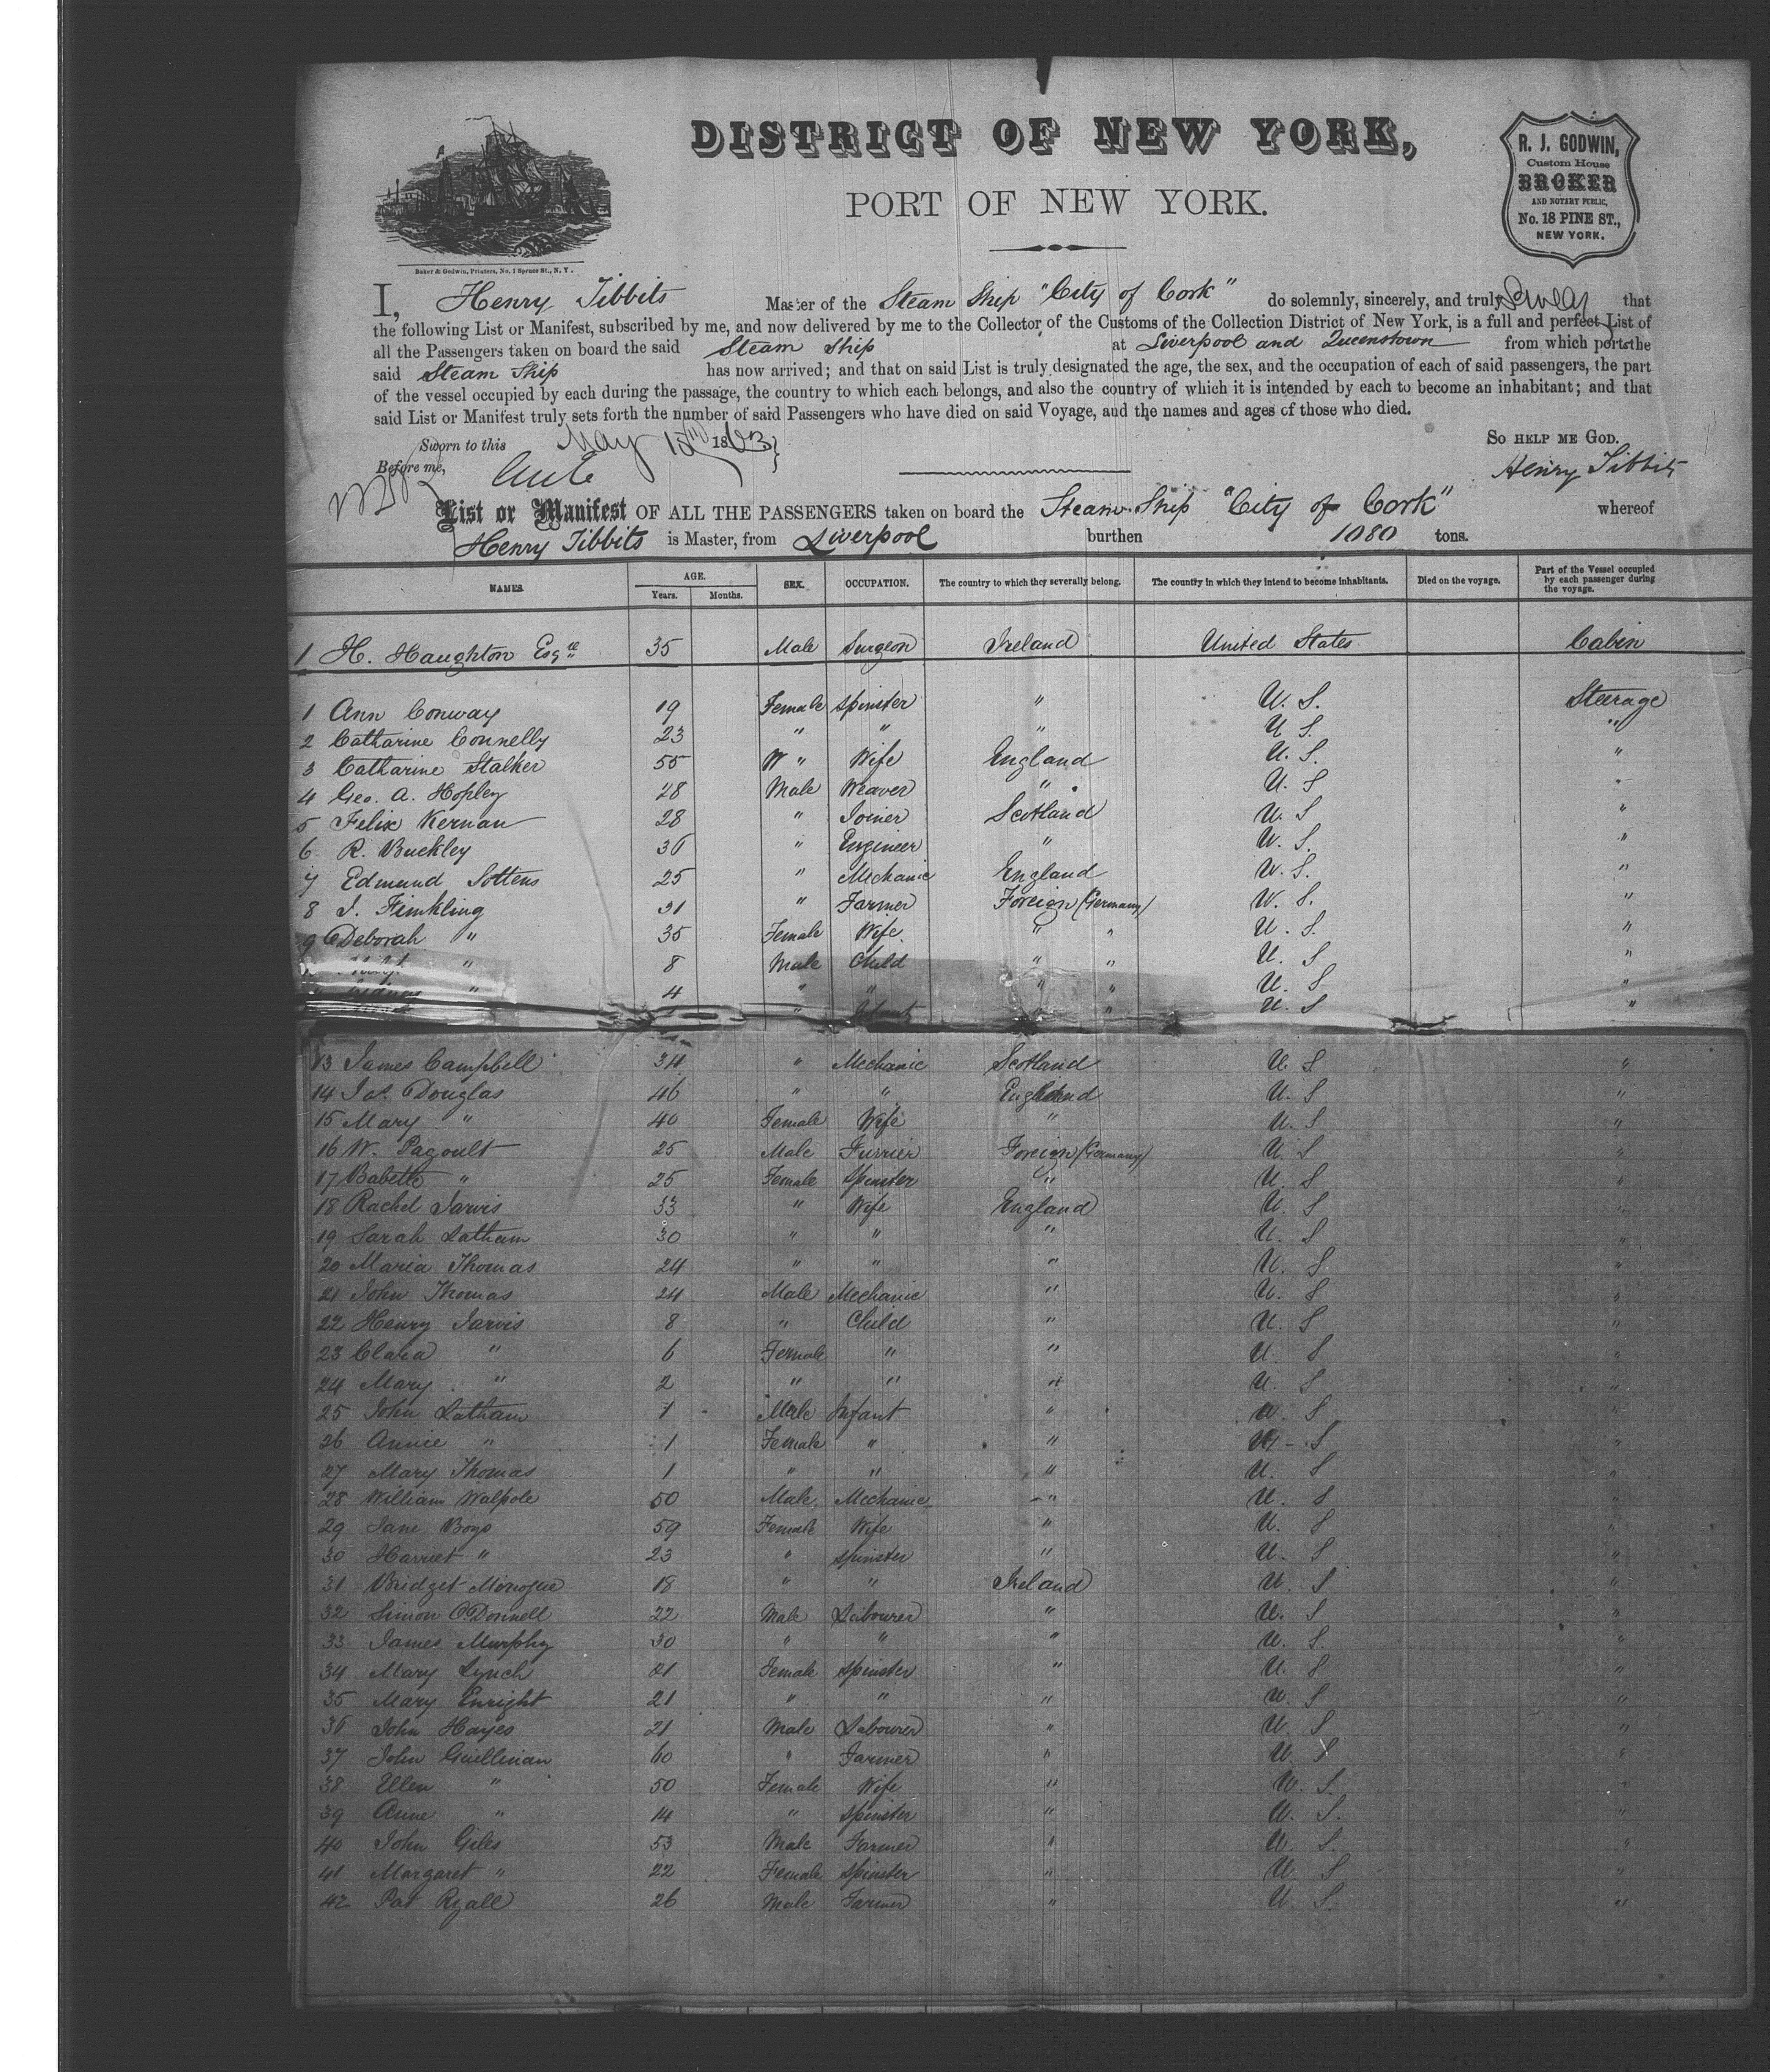 DISTRICT OF NEW YORK,
PORT OF NEW YORK.
R. J. GODWIN,
Custom House
BROKER
AND NOTARY PUBLIC,
No. 18 PINE ST.,
NEW YORK.
Baker & Godwin, Printers, No. 1 Spruce St., N. Y.
I, Henry Tibbits Master of the Steam Ship "City of Cork" do solemnly, sincerely, and truly swear that
the following List or Manifest, subscribed by me, and now delivered by me to the Collector of the Customs of the Collection District of New York, is a full and perfect List of
all the Passengers taken on board the said Steam Ship at Liverpool and Queenstown from which ports the
said Steam Ship has now arrived; and that on said List is truly designated the age, the sex, and the occupation of each of said passengers, the part
of the vessel occupied by each during the passage, the country to which each belongs, and also the country of which it is intended by each to become an inhabitant; and that
said List or Manifest truly sets forth the number of said Passengers who have died on said Voyage, and the names and ages of those who died.
Sworn to this May 1863 SO HELP ME GOD.
Before me, Henry Tibbits
List or Manifest OF ALL THE PASSENGERS taken on board the Steam Ship "City of Cork" whereof
Henry Tibbits is Master, from Liverpool burthen 1080 tons.
NAMES AGE. Years. Months. SEX. OCCUPATION. The country to which they severally belong. The country in which they intend to become inhabitants. Died on the voyage. Part of the Vessel occupied by each passenger during the voyage.
1 H. Haughton Esqre 35 Male Surgeon Ireland United States Cabin
1 Ann Conway 19 Female Spinster " U. S. Steerage
2 Catharine Connelly 23 " " " U S. "
3 Catharine Stalker 55 " Wife England U. S. "
4 Geo. A. Hopley 28 Male Weaver " U. S "
5 Felix Kernan 28 " Joiner Scotland U. S "
6 R. Buckley 36 " Engineer " U. S. "
7 Edmund Sottens 25 " Mechanic England U. S. "
8 J. Finkling 31 " Farmer Foreign (Germany) U. S. "
9 Deborah " 35 Female Wife " " U. S. "
" 8 Male Child " " U. S "
Sidney " 4 " " " " U. S "
" " " U. S "
13 James Campbell 34 " Mechanic Scotland U. S "
14 Jas. Douglas 46 " " England U. S "
15 Mary " 40 Female Wife " U. S "
16 W. Pagoult 25 Male Furrier Foreign (Germany) U. S "
17 Babette " 25 Female Spinster " U. S "
18 Rachel Jarvis 33 " Wife England U. S "
19 Sarah Latham 30 " " " U. S "
20 Maria Thomas 24 " " " U. S "
21 John Thomas 24 Male Mechanic " U. S "
22 Henry Jarvis 8 " Child " U. S "
23 Clara " 6 Female " " U. S "
24 Mary " 2 " " " U. S "
25 John Latham 1 Male Infant " U. S "
26 Annie " 1 Female " " U. S "
27 Mary Thomas 1 " " " U. S "
28 William Walpole 50 Male Mechanic " U. S "
29 Jane Boyo 59 Female Wife " U. S "
30 Harriet " 23 " Spinster " U. S "
31 Bridget Monogue 18 " " Ireland U. S "
32 Simon O'Donnell 22 Male Labourer " U. S "
33 James Murphy 30 " " " U. S. "
34 Mary Lynch 21 Female Spinster " U. S "
35 Mary Enright 21 " " " U. S "
36 John Hayes 21 Male Labourer " U. S "
37 John Guillinan 60 " Farmer " U. S "
38 Ellen " 50 Female Wife " U. S. "
39 Anne " 14 " Spinster " U. S. "
40 John Giles 53 Male Farmer " U. S. "
41 Margaret " 22 Female Spinster " U. S "
42 Pat Ryall 26 Male Farmer " U S. "